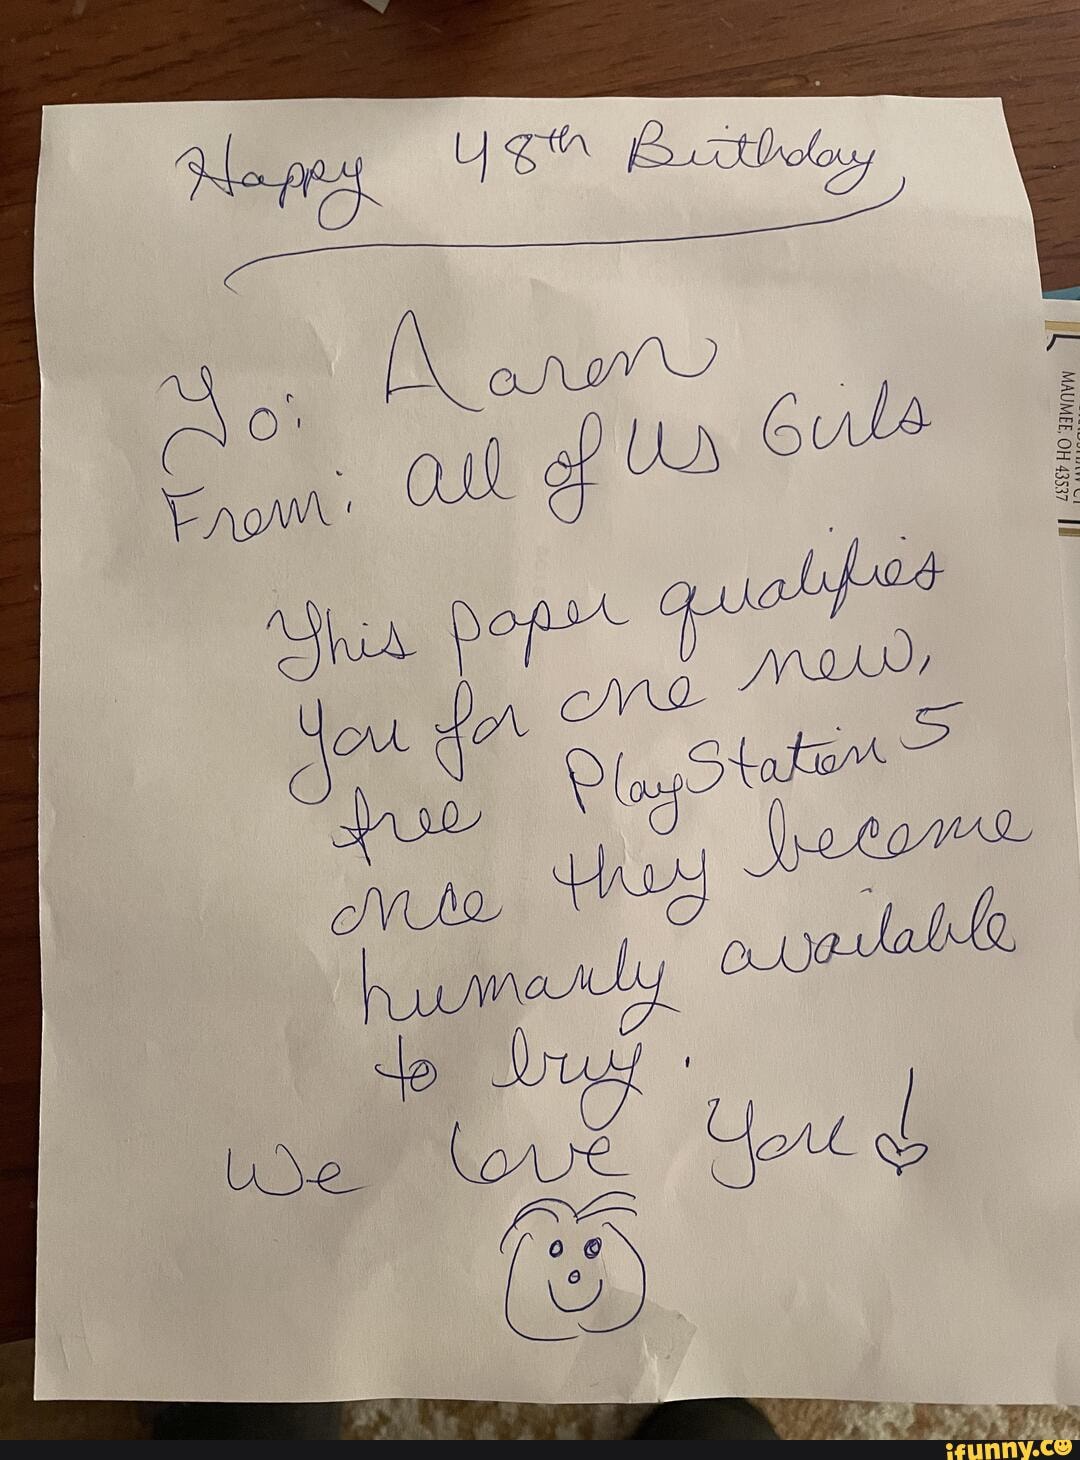 Happy 48th Birthday
To: Aaron
From: All of Us Girls
This paper qualifies
you for one new,
free PlayStation 5
once they become
humanly available
to buy.
We Love You!
MAUMEE, OH 43537
ifunny.co